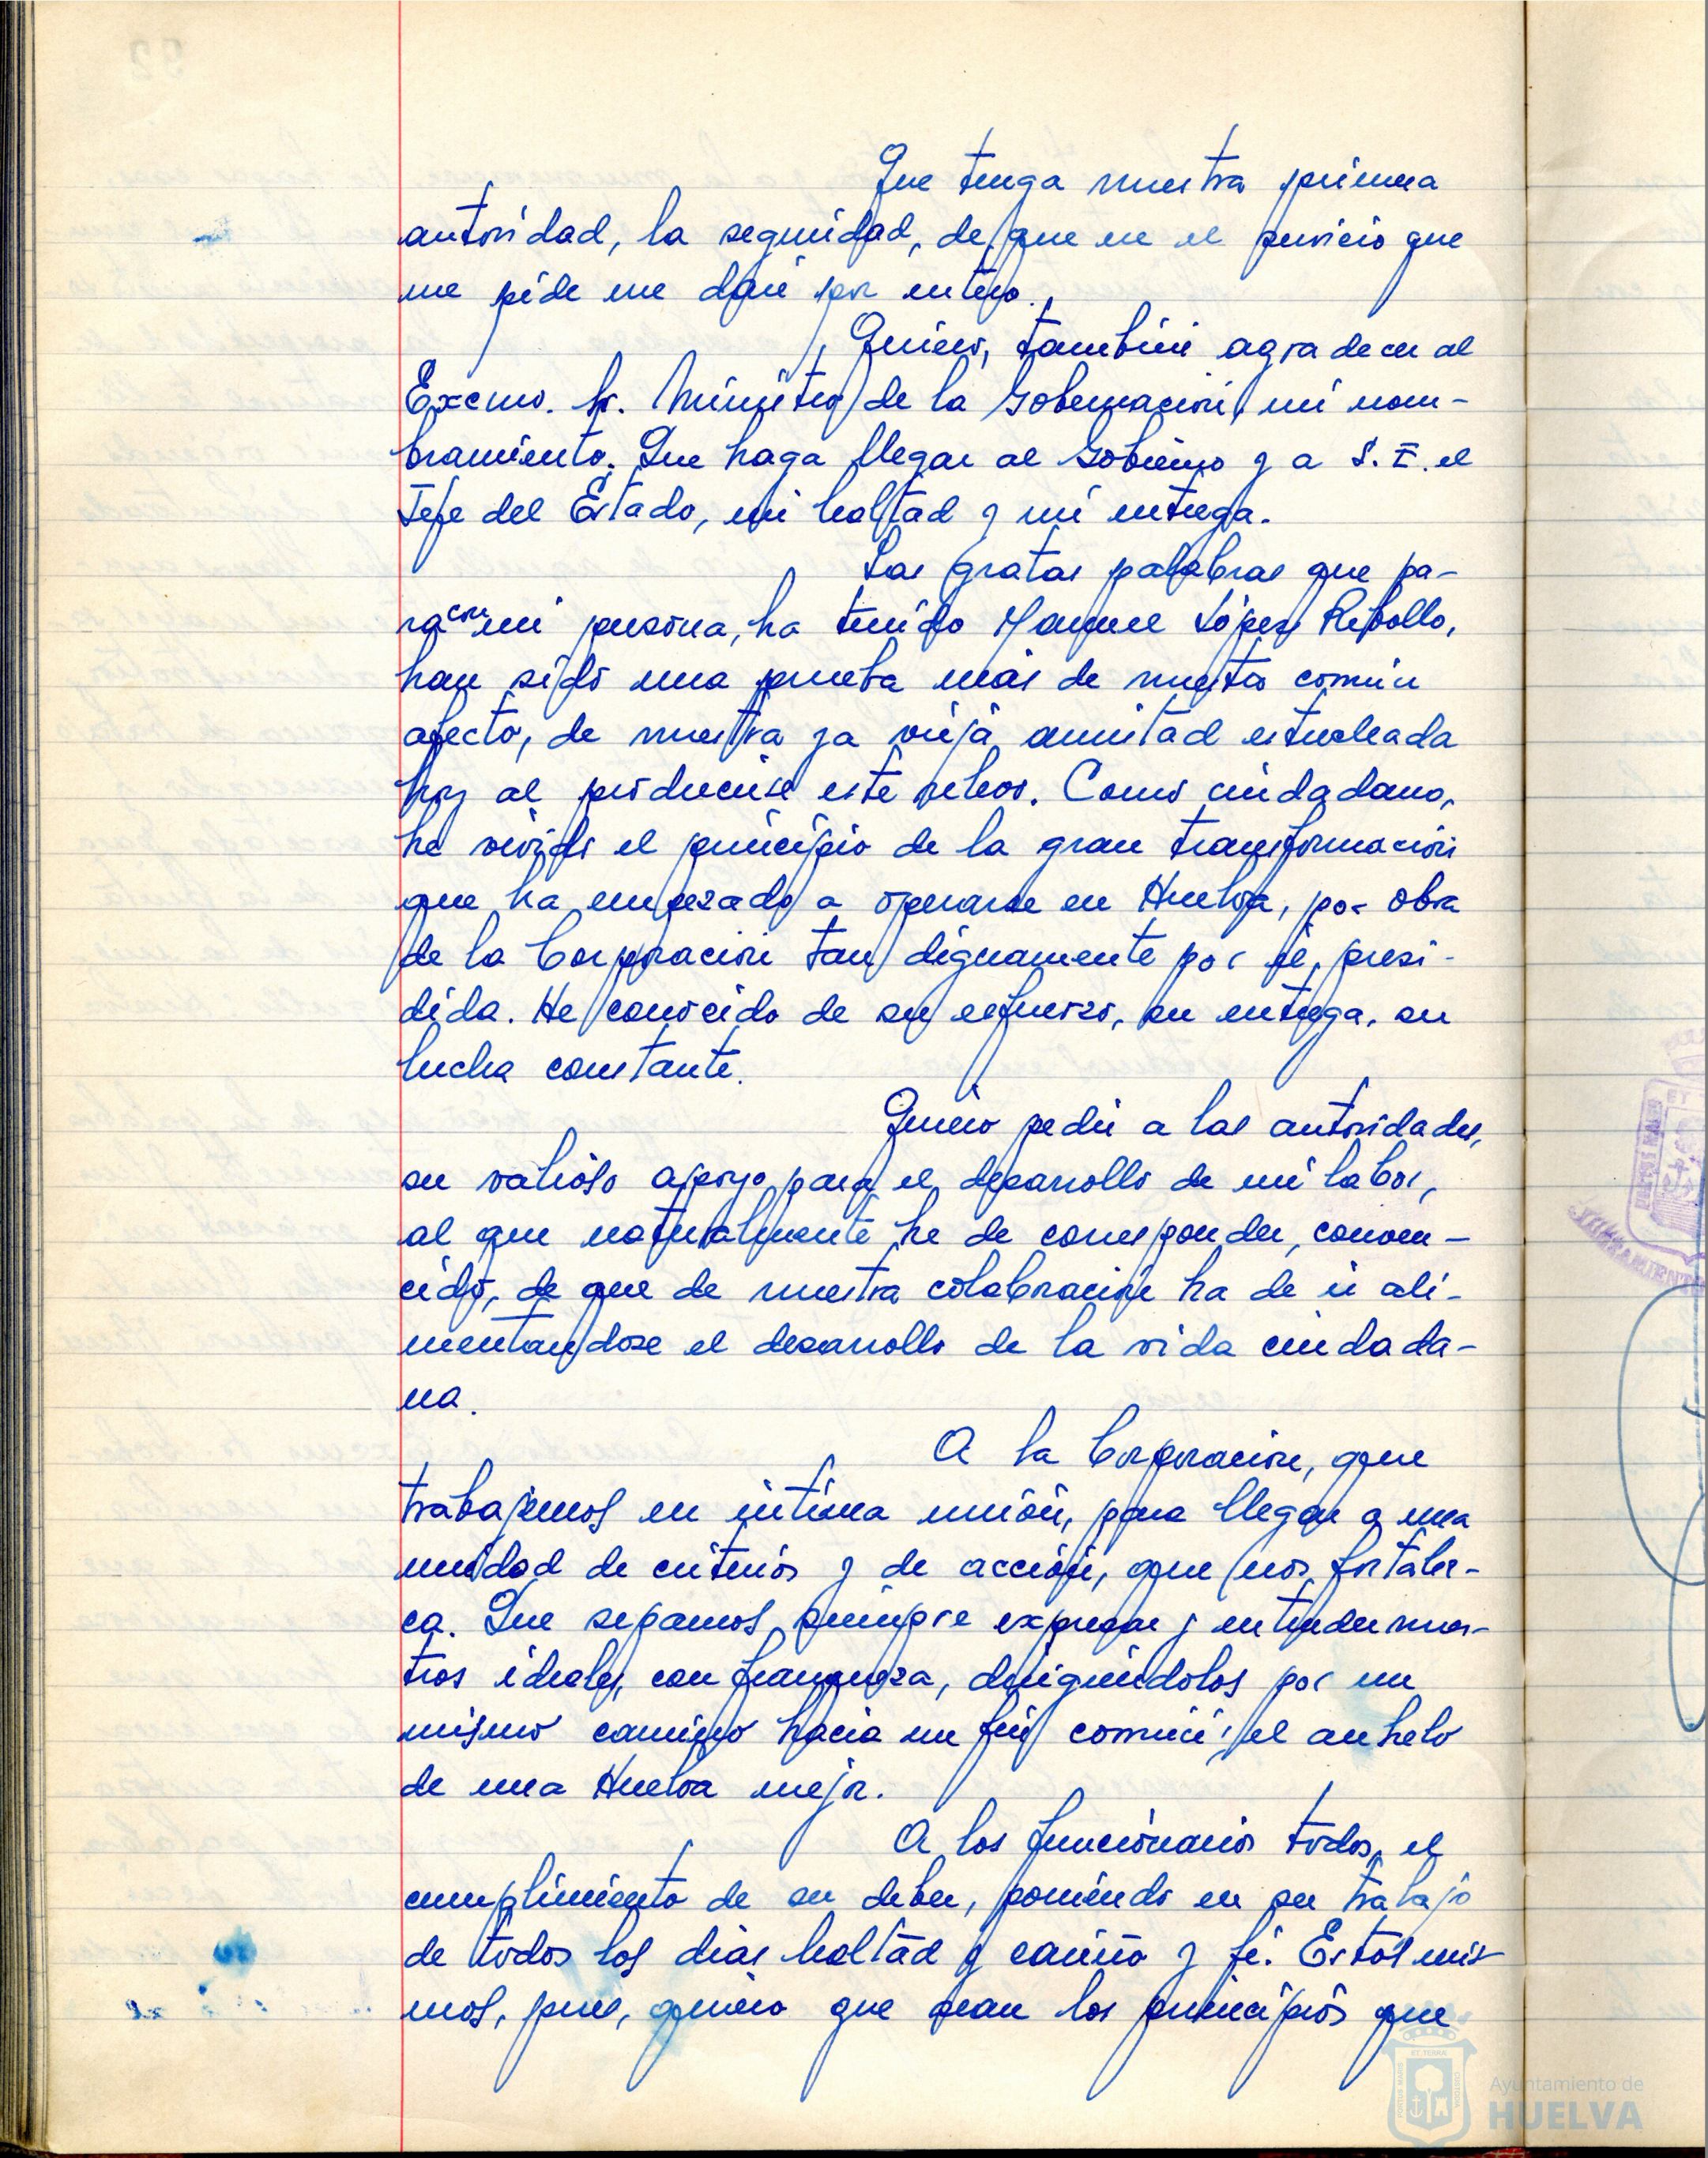 Que tenga nuestra primera
autoridad, la seguridad, de que en el servicio que
me pide me daré por entero.
Quiero, también agradecer al
Excmo. Sr. Ministro de la Gobernación, mi nom-
bramiento. Que haga llegar al Gobierno y a S. E. el
Jefe del Estado, mi lealtad y mi entrega.
Las gratas palabras que pa-
ra con mi persona, ha tenido Manuel López Rebollo,
han sido una prueba más de nuestro común
afecto, de nuestra ya vieja amistad estrechada
hoy al producirse este relevo. Como ciudadano,
he vivido el principio de la gran transformación
que ha empezado a operarse en Huelva, por obra
de la Corporación tan dignamente por él, presi-
dida. He conocido de su esfuerzo, su entrega, su
lucha constante.
Quiero pedir a las autoridades,
su valioso apoyo para el desarrollo de mi labor,
al que naturalmente he de corresponder, conven-
cido, de que de nuestra colaboración ha de ir ali-
mentandose el desarrollo de la vida ciudada-
na.
A la Corporación, que
trabajemos en íntima unión, para llegar a una
unidad de criterios y de acción, que nos fortalez-
ca. Que sepamos siempre expresar y entender nues-
tros ideales, con franqueza, dirigiéndolos por un
mismo camino hacia un fin común: el anhelo
de una Huelva mejor.
A los funcionarios todos, el
cumplimiento de su deber, poniendo en su trabajo
de todos los días lealtad y cariño y fé. Estos mis-
mos, pues, quiero que sean los principios que
Ayuntamiento de
HUELVA